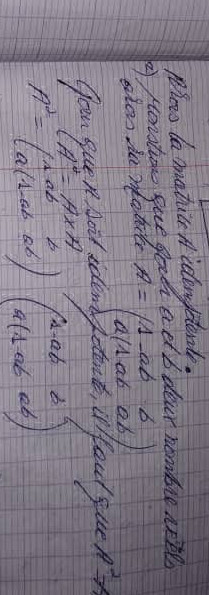 Alors la matrice A idempotente.
2) Montrons que pour a et b deux nombre réels
alors la matrice A = (1-ab b
a(1-ab) ab)
Pour que A soit idempotente, il faut que A² = A
(A² = A×A
A² = (1-ab b (1-ab b
(a(1-ab ab) (a(1-ab ab)